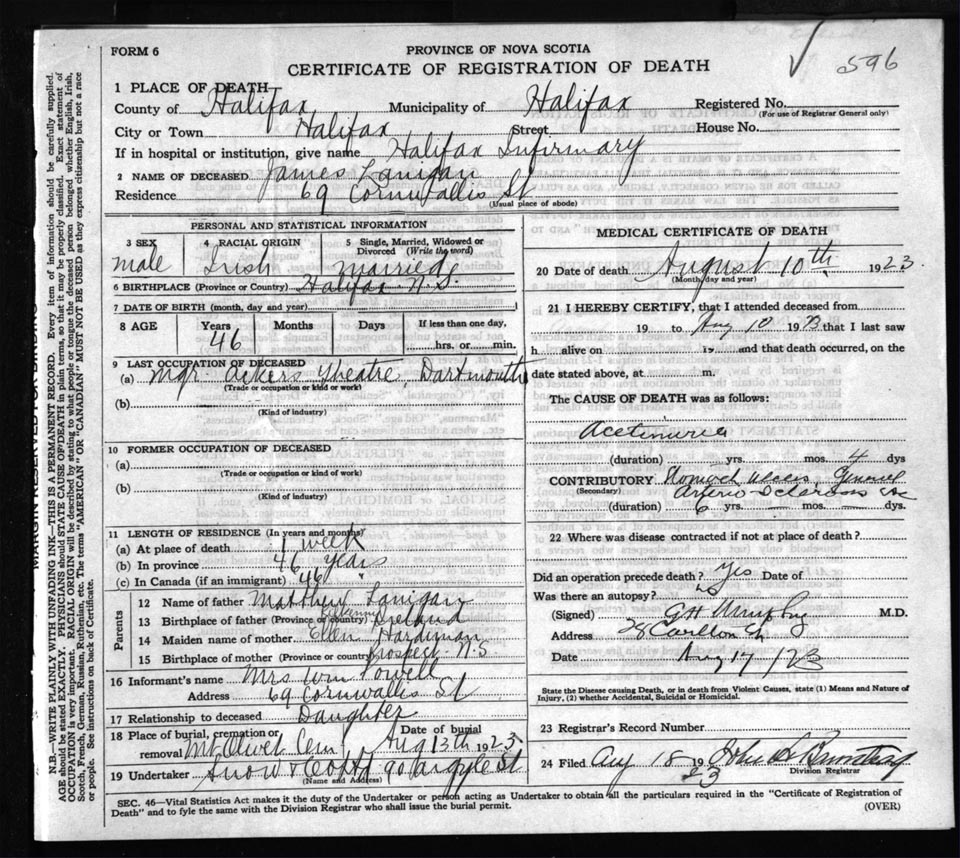 FORM 6
PROVINCE OF NOVA SCOTIA
CERTIFICATE OF REGISTRATION OF DEATH
596
1 PLACE OF DEATH
County of Halifax Municipality of Halifax Registered No.
(For use of Registrar General only)
City or Town Halifax Street House No.
If in hospital or institution, give name Halifax Infirmary
2 NAME OF DECEASED James Lanigan
Residence 69 Cornwallis St
(Usual place of abode)
PERSONAL AND STATISTICAL INFORMATION
3 SEX 4 RACIAL ORIGIN 5 Single, Married, Widowed or Divorced (Write the word)
male Irish Married
6 BIRTHPLACE (Province or Country) Halifax N.S.
7 DATE OF BIRTH (month, day and year)
8 AGE Years Months Days If less than one day,
46 hrs. or min.
9 LAST OCCUPATION OF DECEASED
(a) Mgr Ackers Theatre, Dartmouth
(Trade or occupation or kind of work)
(b)
(Kind of industry)
10 FORMER OCCUPATION OF DECEASED
(a)
(Trade or occupation or kind of work)
(b)
(Kind of industry)
11 LENGTH OF RESIDENCE (In years and months)
(a) At place of death 1 week
(b) In province 46 years
(c) In Canada (if an immigrant) 46 "
Parents
12 Name of father Matthew Lanigan
13 Birthplace of father (Province or country) Kilkenny Ireland
14 Maiden name of mother Ellen Hardiman
15 Birthplace of mother (Province or country) Prospect N.S
16 Informant's name Mrs Wm Powell
Address 69 Cornwallis St
17 Relationship to deceased Daughter
18 Place of burial, cremation or removal Mt Olivet Cem Date of burial Aug 13th 1923
19 Undertaker Snow & Co Ltd 90 Argyle St
(Name and Address)
MEDICAL CERTIFICATE OF DEATH
20 Date of death August 10th 1923.
(Month, day and year)
21 I HEREBY CERTIFY, that I attended deceased from
19 to Aug 10 1923 that I last saw
h alive on 19 and that death occurred, on the
date stated above, at m.
The CAUSE OF DEATH was as follows:
Acetinuria
(duration) yrs. mos. 4 dys
CONTRIBUTORY Stomach Ulcers General
(Secondary) Arterio Sclerosis
(duration) 6 yrs. — mos. — dys.
22 Where was disease contracted if not at place of death?
Did an operation precede death? Yes Date of
Was there an autopsy? No
(Signed) G H Murphy M.D.
Address 28 Carlton St
Date Aug 17/23
State the Disease causing Death, or in death from Violent Causes, state (1) Means and Nature of
Injury, (2) whether Accidental, Suicidal or Homicidal.
23 Registrar's Record Number
24 Filed Aug 18 1923 John
Division Registrar
SEC. 46—Vital Statistics Act makes it the duty of the Undertaker or person acting as Undertaker to obtain all the particulars required in the "Certificate of Registration of
Death" and to fyle the same with the Division Registrar who shall issue the burial permit.
(OVER)
MARGIN RESERVED FOR BINDING
N.B.—WRITE PLAINLY WITH UNFADING INK—THIS IS A PERMANENT RECORD. Every item of information should be carefully supplied.
AGE should be stated EXACTLY. PHYSICIANS should STATE CAUSE OF DEATH in plain terms, so that it may be properly classified. Exact statement of
OCCUPATION is very important. RACIAL ORIGIN will be described by stating to what people or tongue the deceased person belonged whether English, Irish,
Scotch, French, German, Russian, Ruthenian, etc. The terms "AMERICAN" OR "CANADIAN" MUST NOT BE USED as they express citizenship but not a race
or people. See instructions on back of Certificate.